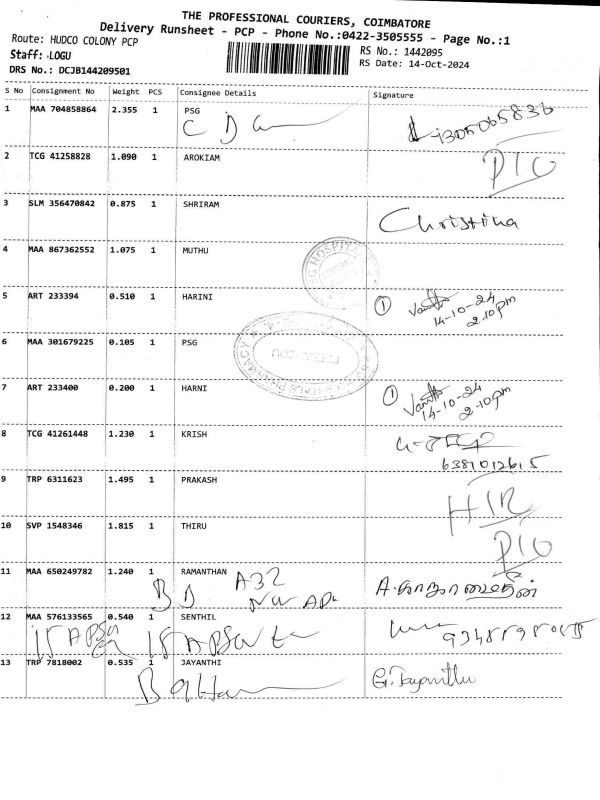 THE PROFESSIONAL COURIERS, COIMBATORE
Delivery Runsheet - PCP - Phone No.:0422-3505555 - Page No.:1
Route: HUDCO COLONY PCP
RS No.: 1442095
Staff: LOGU
RS Date: 14-Oct-2024
DRS No.: DCJB144209501
S No Consignment No Weight PCS Consignee Details Signature
1 MAA 704858864 2.355 1 PSG
2 TCG 41258828 1.090 1 AROKIAM
3 SLM 356470842 0.875 1 SHRIRAM
Christina
4 MAA 867362552 1.075 1 MUTHU
HOSPITAL
5 ART 233394 0.510 1 HARINI
1
14-10-24
2.10pm
6 MAA 301679225 0.105 1 PSG
PHARMACY
7 ART 233400 0.200 1 HARNI
1
14-10-24
2-10pm
8 TCG 41261448 1.230 1 KRISH
6381012615
9 TRP 6311623 1.495 1 PRAKASH
10 SVP 1548346 1.815 1 THIRU
11 MAA 650249782 1.240 1 RAMANTHAN
A32
12 MAA 576133565 0.540 1 SENTHIL
13 TRP 7818002 0.535 1 JAYANTHI
G. Jayanthi